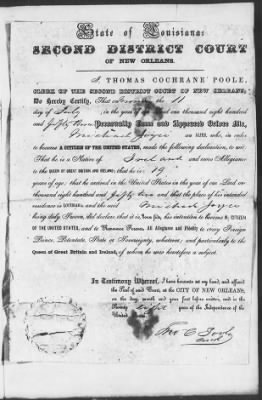 State of Louisiana:
SECOND DISTRICT COURT
OF NEW ORLEANS.
I, THOMAS COCHRANE POOLE,
CLERK OF THE SECOND DISTRICT COURT OF NEW ORLEANS,
Do Hereby Certify, That on the 11
day of July in the year one thousand eight hundred
and fifty Personally Came and Appeared Before Me,
Michael Joyce an ALIEN, who, in order
to become A CITIZEN OF THE UNITED STATES, made the following declaration, to wit:
That he is a Native of Ireland and owes Allegiance
to the QUEEN OF GREAT BRITAIN AND IRELAND; that he is 19
years of age; that he arrived in the United States in the year of our Lord one
thousand eight hundred and fifty and that the place of his intended
residence is LOUISIANA; and the said Michael Joyce
being duly Sworn, did declare that it is, bona fide, his intention to become A CITIZEN
OF THE UNITED STATES, and to Renounce Forever, All Allegiance and Fidelity to every Foreign
Prince, Potentate, State or Sovereignty, whatever; and particularly to the
Queen of Great Britain and Ireland, of whom he was heretofore a subject.
In Testimony Whereof, I have hereunto set my hand, and affixed
the Seal of said Court, at the CITY OF NEW ORLEANS,
on the day, month and year first before written, and in the
Seventy of the Independence of the
United
Tho C Poole
Clerk